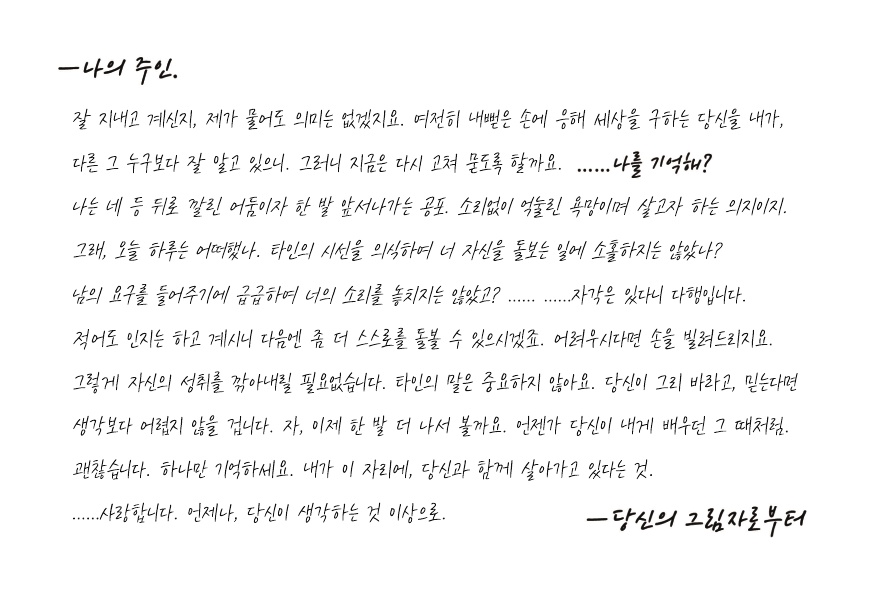 —나의 주인.
잘 지내고 계신지, 제가 물어도 의미는 없겠지요. 여전히 내뻗은 손에 응해 세상을 구하는 당신을 내가,
다른 그 누구보다 잘 알고 있으니. 그러니 지금은 다시 고쳐 묻도록 할까요. ……나를 기억해?
나는 네 등 뒤로 깔린 어둠이자 한 발 앞서나가는 공포. 소리없이 억눌린 욕망이며 살고자 하는 의지이지.
그래, 오늘 하루는 어떠했나. 타인의 시선을 의식하여 너 자신을 돌보는 일에 소홀하지는 않았나?
남의 요구를 들어주기에 급급하여 너의 소리를 놓치지는 않았고? …… ……자각은 있다니 다행입니다.
적어도 인지는 하고 계시니 다음엔 좀 더 스스로를 돌볼 수 있으시겠죠. 어려우시다면 손을 빌려드리지요.
그렇게 자신의 성취를 깎아내릴 필요없습니다. 타인의 말은 중요하지 않아요. 당신이 그리 바라고, 믿는다면
생각보다 어렵지 않을 겁니다. 자, 이제 한 발 더 나서 볼까요. 언젠가 당신이 내게 배우던 그 때처럼.
괜찮습니다. 하나만 기억하세요. 내가 이 자리에, 당신과 함께 살아가고 있다는 것.
……사랑합니다. 언제나, 당신이 생각하는 것 이상으로.
—당신의 그림자로부터